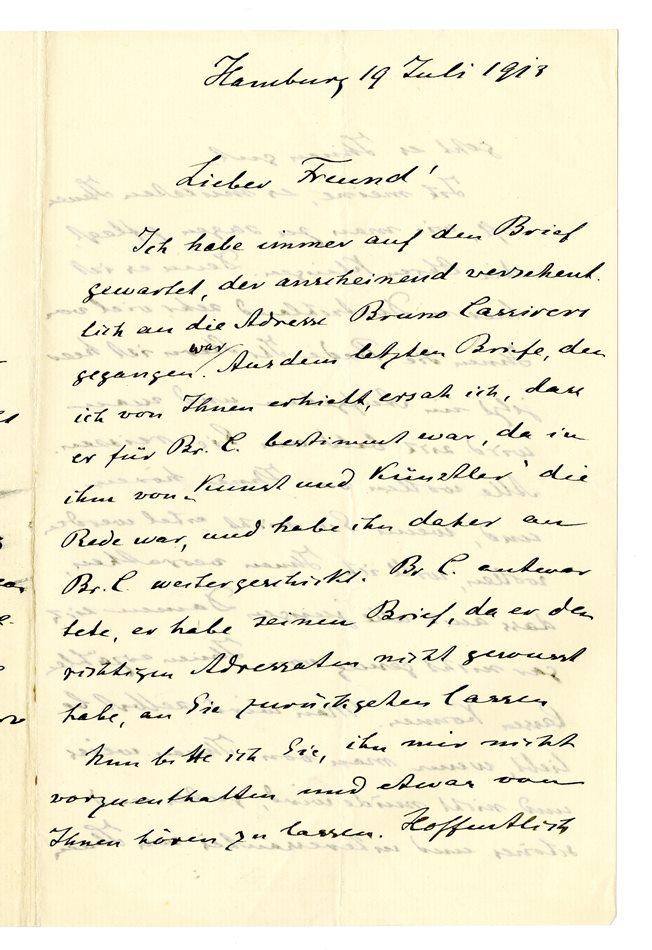 Hamburg 19 Juli 1913
Lieber Freund!
Ich habe immer auf den Brief
gewartet, der anscheinend versehent-
lich an die Adresse Bruno Cassirers
gegangen war. Aus dem letzten Briefe, den
ich von Ihnen erhielt, ersah ich, dass
er für Br. C. bestimmt war, da in
ihm von „Kunst und Künstler" die
Rede war, und habe ihn daher an
Br. C. weitergeschickt. Br. C. antwor
tete, er habe seinen Brief, da er den
richtigen Adressaten nicht gewusst
habe, an Sie zurückgehen lassen
Nun bitte ich Sie, ihn mir nicht
vorzuenthalten und etwas von
Ihnen hören zu lassen. Hoffentlich